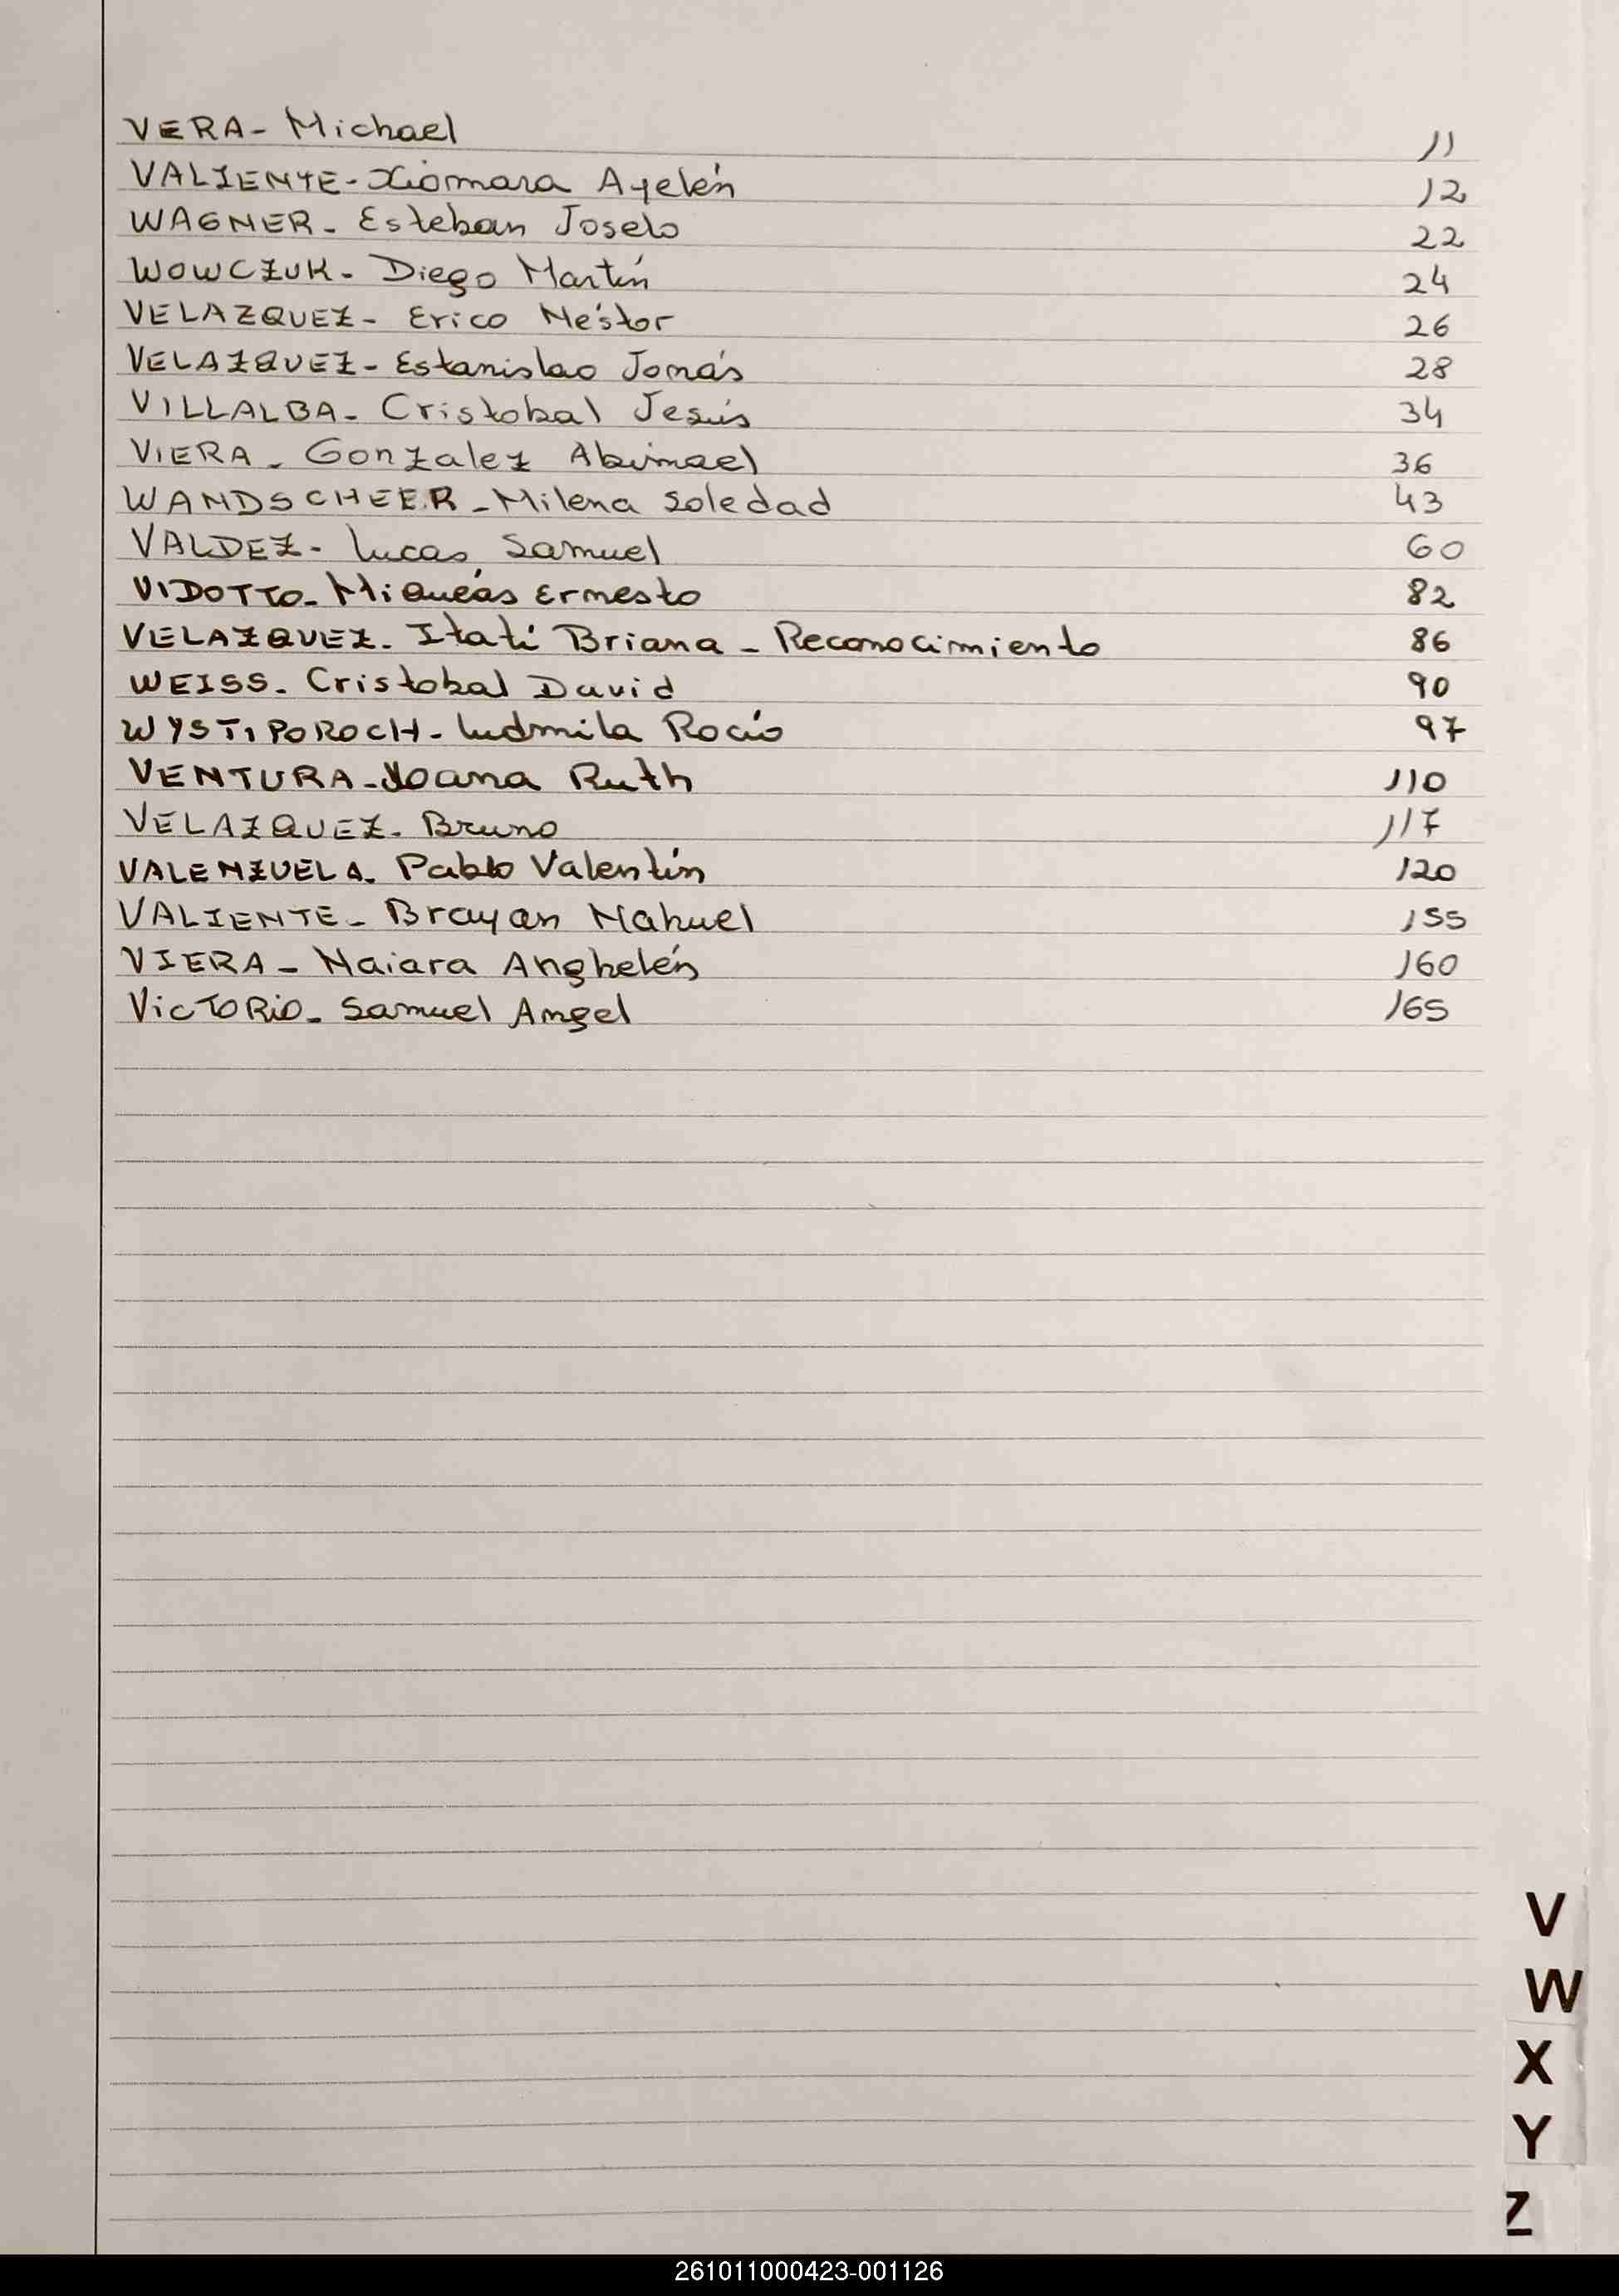 VERA- Michael 11
VALIENTE- Xiomara Ayelén 12
WAGNER- Esteban Joselo 22
WOWCZUK- Diego Martín 24
VELAZQUEZ- Erico Néstor 26
VELAZQUEZ- Estanislao Tomás 28
VILLALBA- Cristobal Jesús 34
VIERA- Gonzalez Abimael 36
WANDSCHEER- Milena Soledad 43
VALDEZ- Lucas Samuel 60
VIDOTTO- Miqueás Ernesto 82
VELAZQUEZ- Itatí Briana - Reconocimiento 86
WEISS- Cristobal David 90
WYSTIPOROCH- Ludmila Rocío 97
VENTURA- Joana Ruth 110
VELAZQUEZ- Bruno 117
VALENZUELA- Pablo Valentín 120
VALIENTE- Brayan Nahuel 155
VIERA- Naiara Anghelén 160
VICTORIO- Samuel Angel 165
V
W
X
Y
Z
261011000423-001126